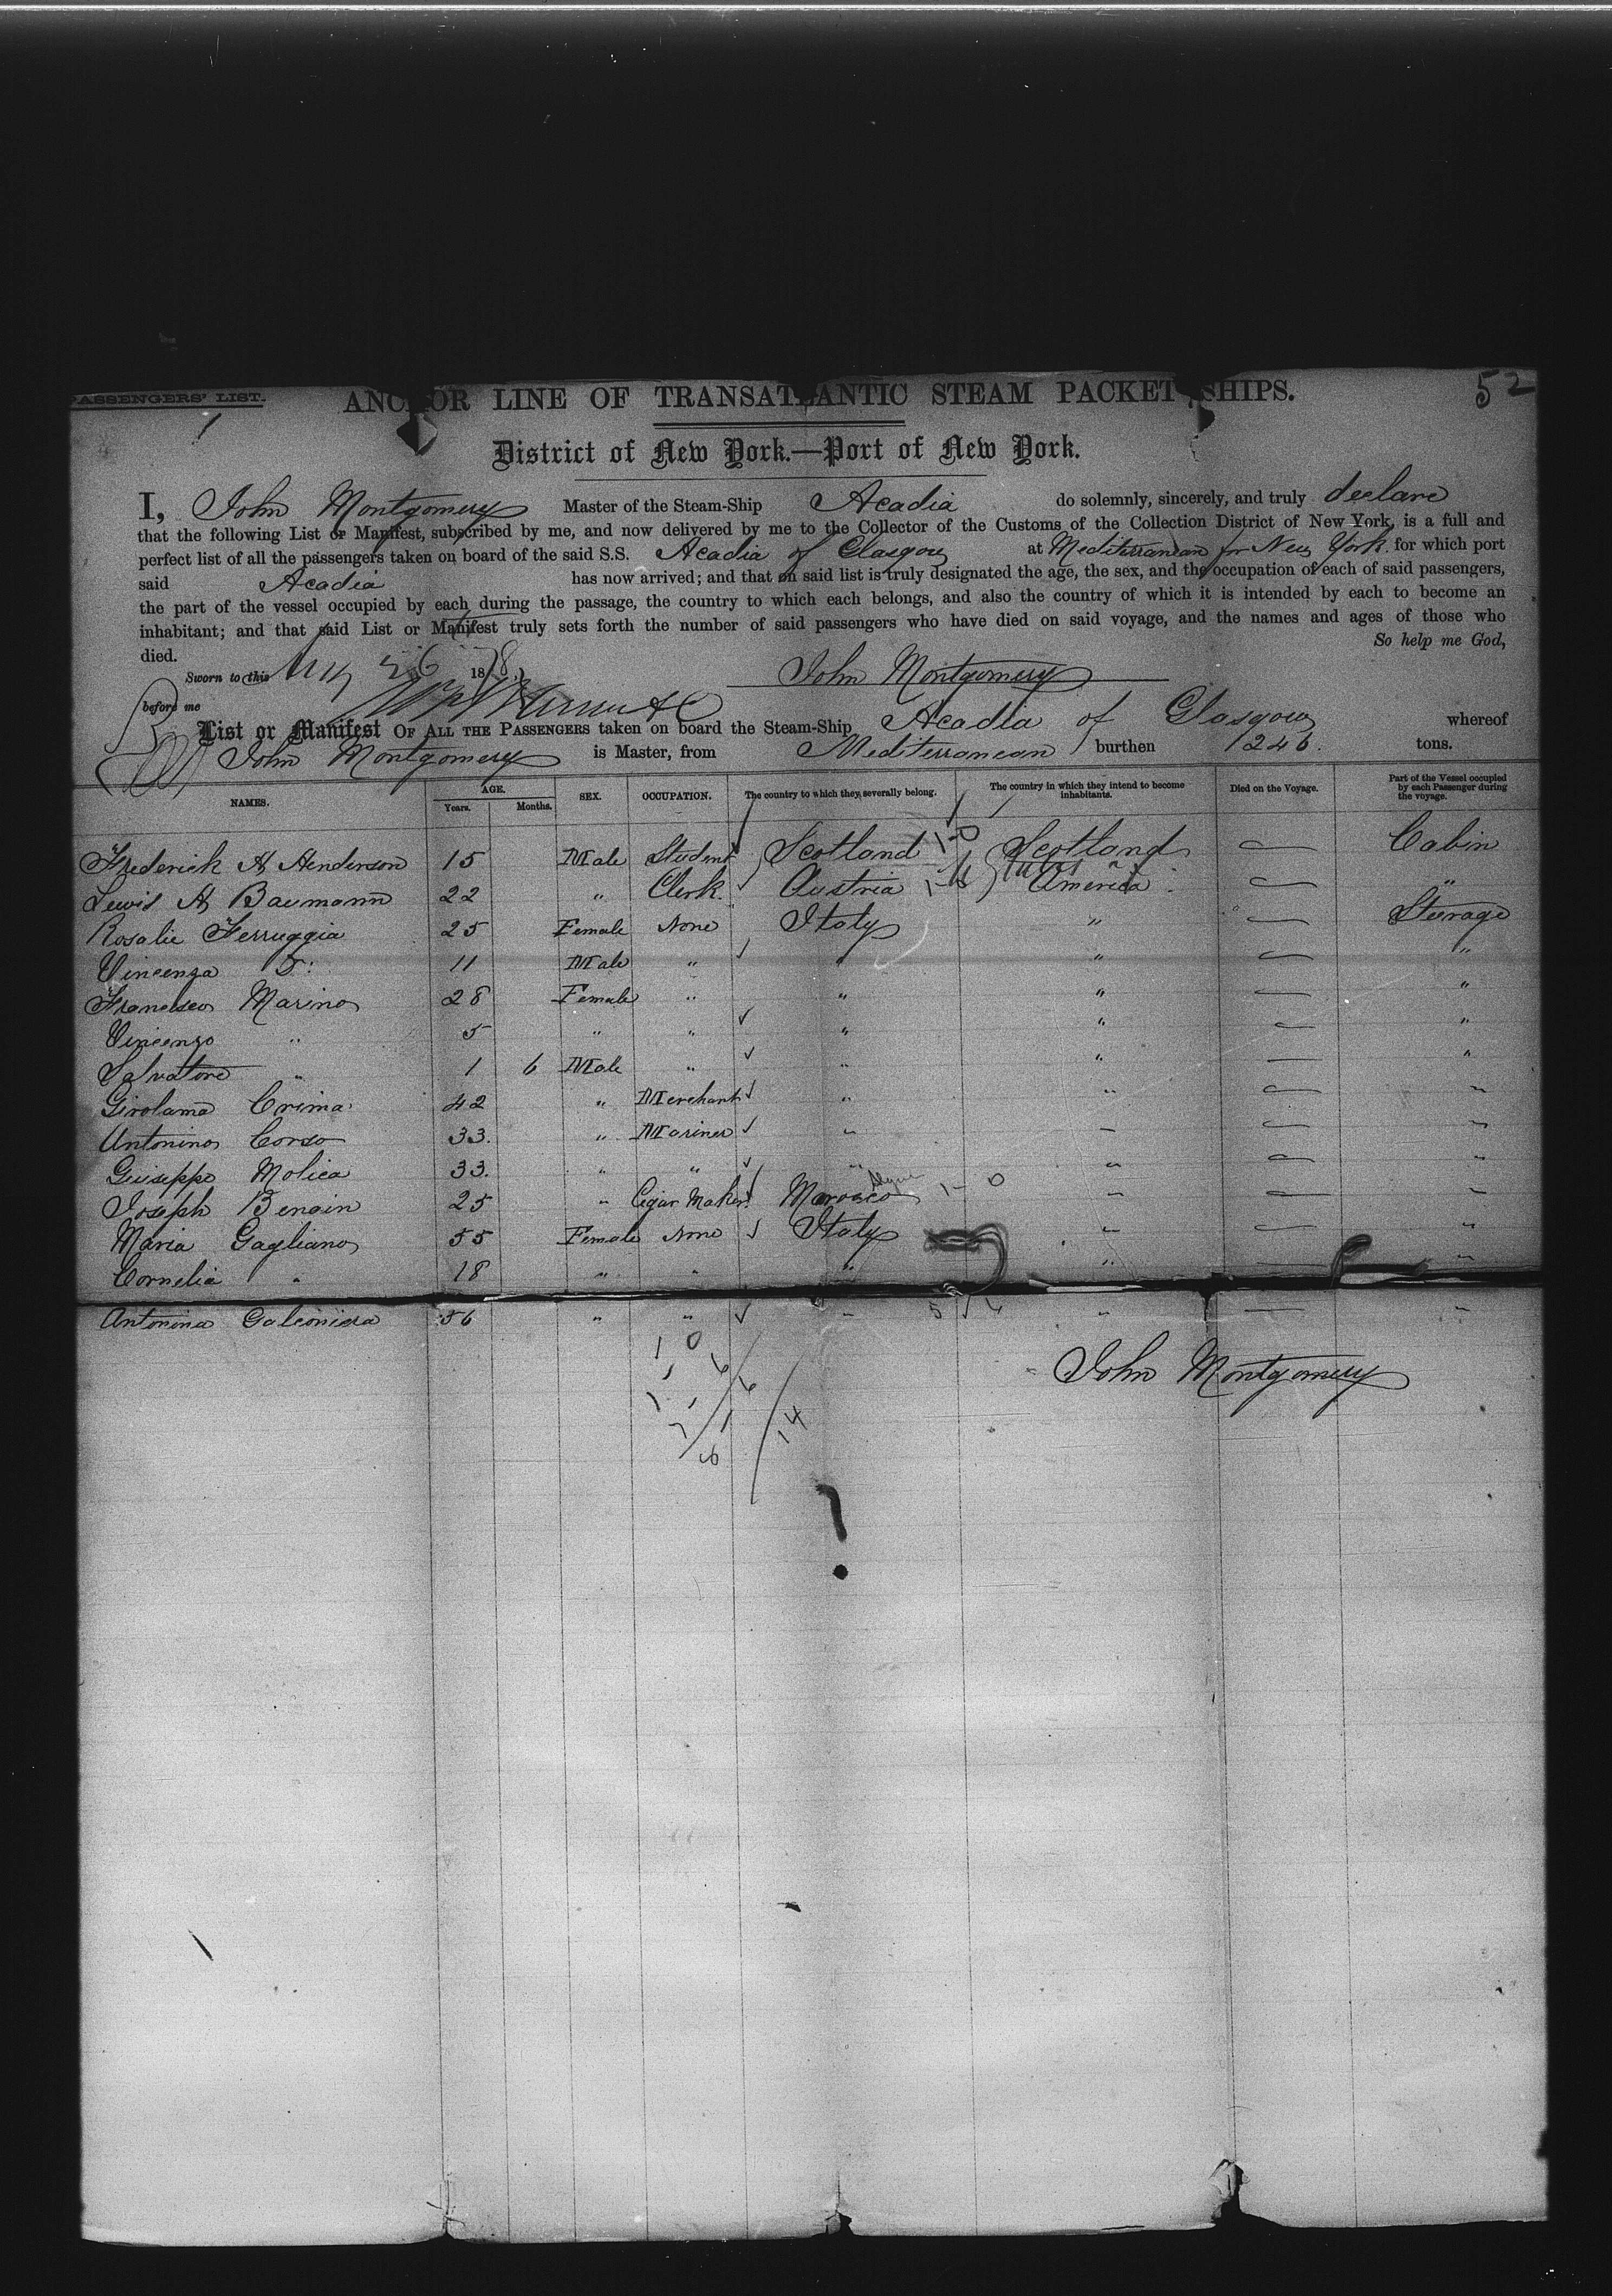 PASSENGERS' LIST.
1
52
ANCHOR LINE OF TRANSATLANTIC STEAM PACKET SHIPS.
District of New York.—Port of New York.
I, John Montgomery Master of the Steam-Ship Acadia do solemnly, sincerely, and truly declare
that the following List or Manifest, subscribed by me, and now delivered by me to the Collector of the Customs of the Collection District of New York, is a full and
perfect list of all the passengers taken on board of the said S.S. Acadia of Glasgow at Mediterranean for New York for which port
said Acadia has now arrived; and that on said list is truly designated the age, the sex, and the occupation of each of said passengers,
the part of the vessel occupied by each during the passage, the country to which each belongs, and also the country of which it is intended by each to become an
inhabitant; and that said List or Manifest truly sets forth the number of said passengers who have died on said voyage, and the names and ages of those who
died. So help me God,
Sworn to this 26 1878, John Montgomery
before me
List or Manifest OF ALL THE PASSENGERS taken on board the Steam-Ship Acadia of Glasgow whereof
John Montgomery is Master, from Mediterranean burthen 1246. tons.
NAMES. AGE. Years. Months. SEX. OCCUPATION. The country to which they severally belong. The country in which they intend to become inhabitants. Died on the Voyage. Part of the Vessel occupied by each Passenger during the voyage.
Frederick A Henderson 15 Male Student Scotland 1-0 Scotland — Cabin
Lewis A Baumann 22 " Clerk. Austria America — "
Rosalie Ferruggia 25 Female None Italy " — Steerage
Vincenza F: 11 Male " " " — "
Francisco Marino 28 Female " " " — "
Vincenzo " 5 " " " " — "
Salvatore " 1 6 Male " " " — "
Girolama Crima 42 " Merchant " " — "
Antonino Corso 33. " Mariner " " — "
Guiseppe Molica 33. " " " " — "
Joseph Benain 25 " Cigar Maker Marocco 1-0 " — "
Maria Gagliano 55 Female None Italy " — "
Cornelia " 18 " " " " — "
Antonina Galconiera 56 " " " " — "
John Montgomery
1 0
14